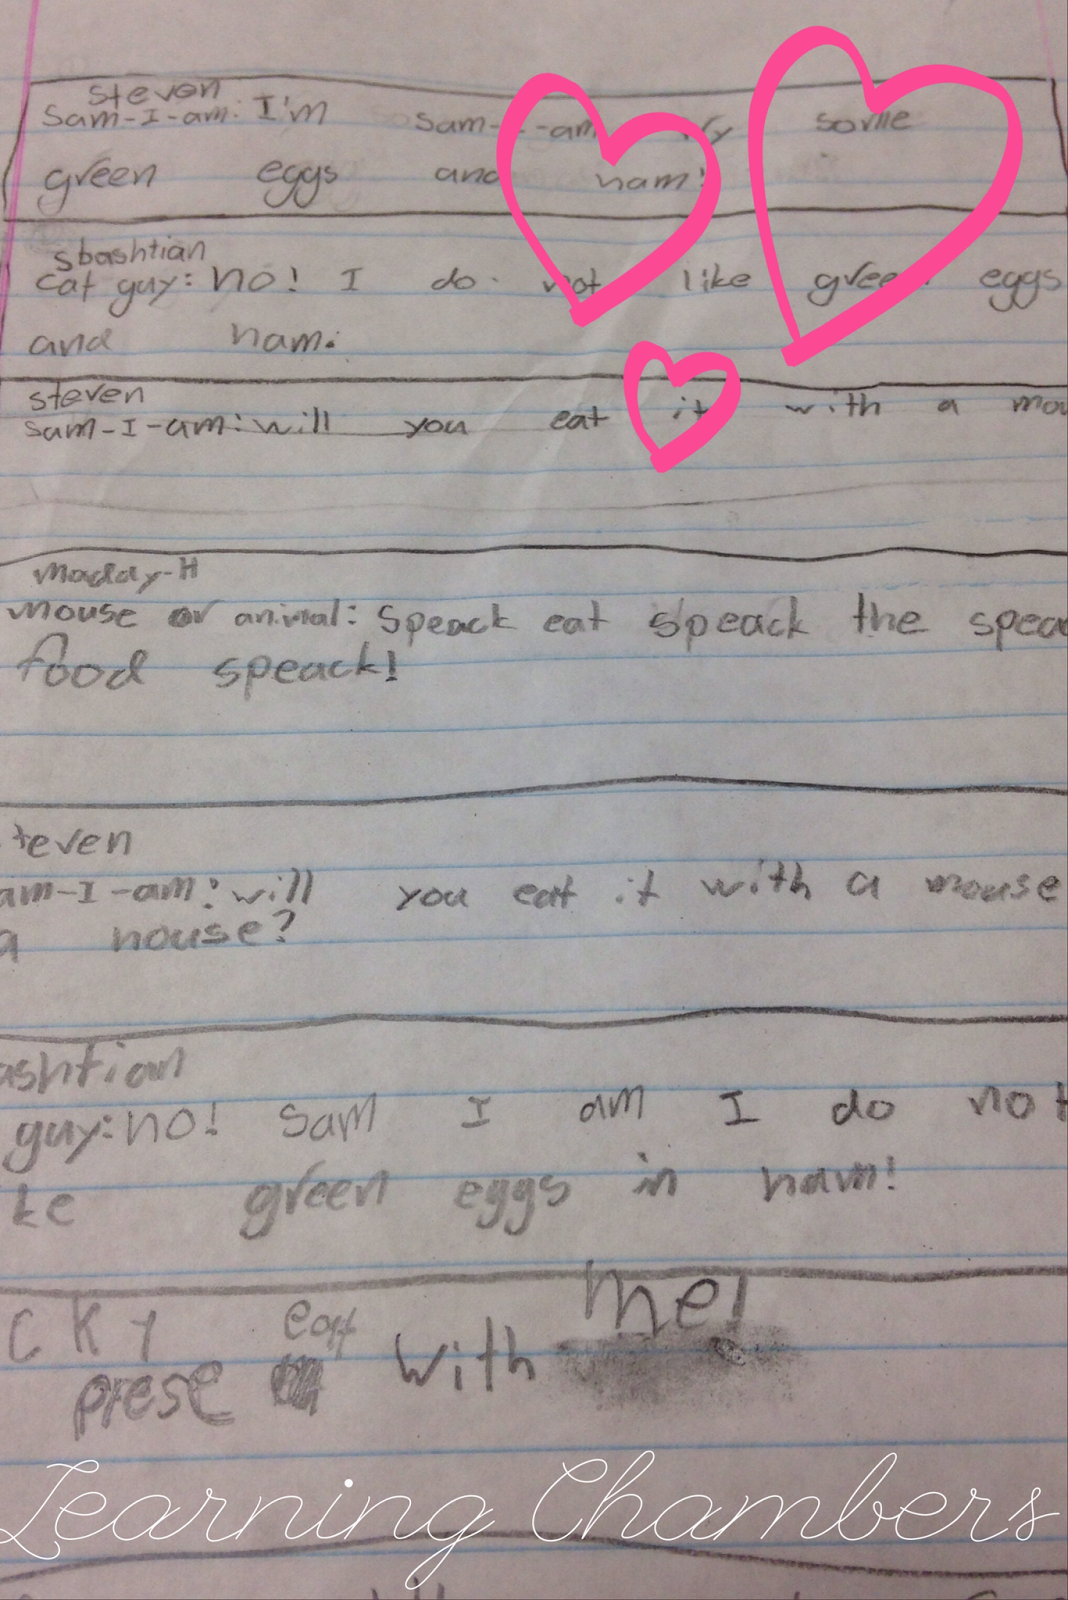 steven
Sam-I-am: I'm Sam-I-am try some
green eggs and ham!
sbashtian
cat guy: no! I do not like green eggs
and ham.
steven
sam-I-am: will you eat it with a mou
maday-H
mouse or animal: Speack eat speack the speac
food speack!
teven
am-I-am: will you eat it with a mouse
a house?
ashtian
guy: no! Sam I am I do not
ke green eggs in ham!
cky eat me!
prese with
Learning Chambers